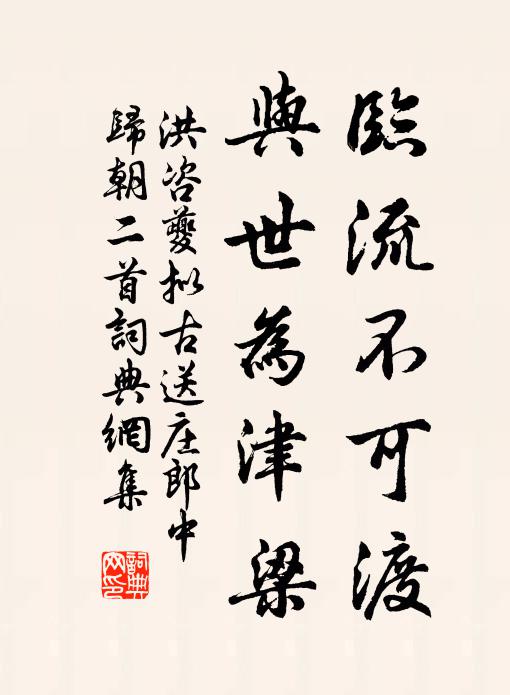 臨流不可渡
與世為津梁
洪咨夔擬古送庄郎中
歸朝二首詞典網集
詞典網印